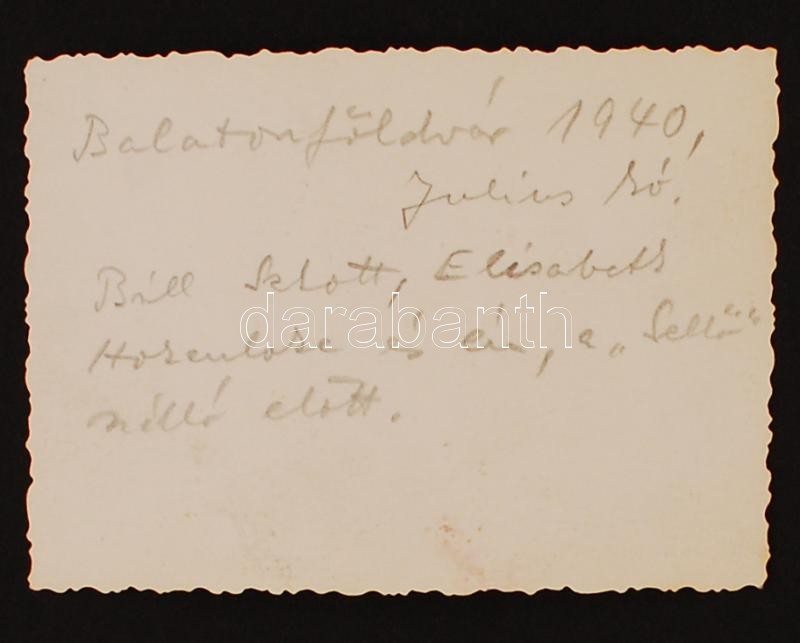 Balatonföldvár 1940,
Julius hó.
Bill Sklott, Elisabeth
darabanth
és én, a „Sellő”
szálló előtt.